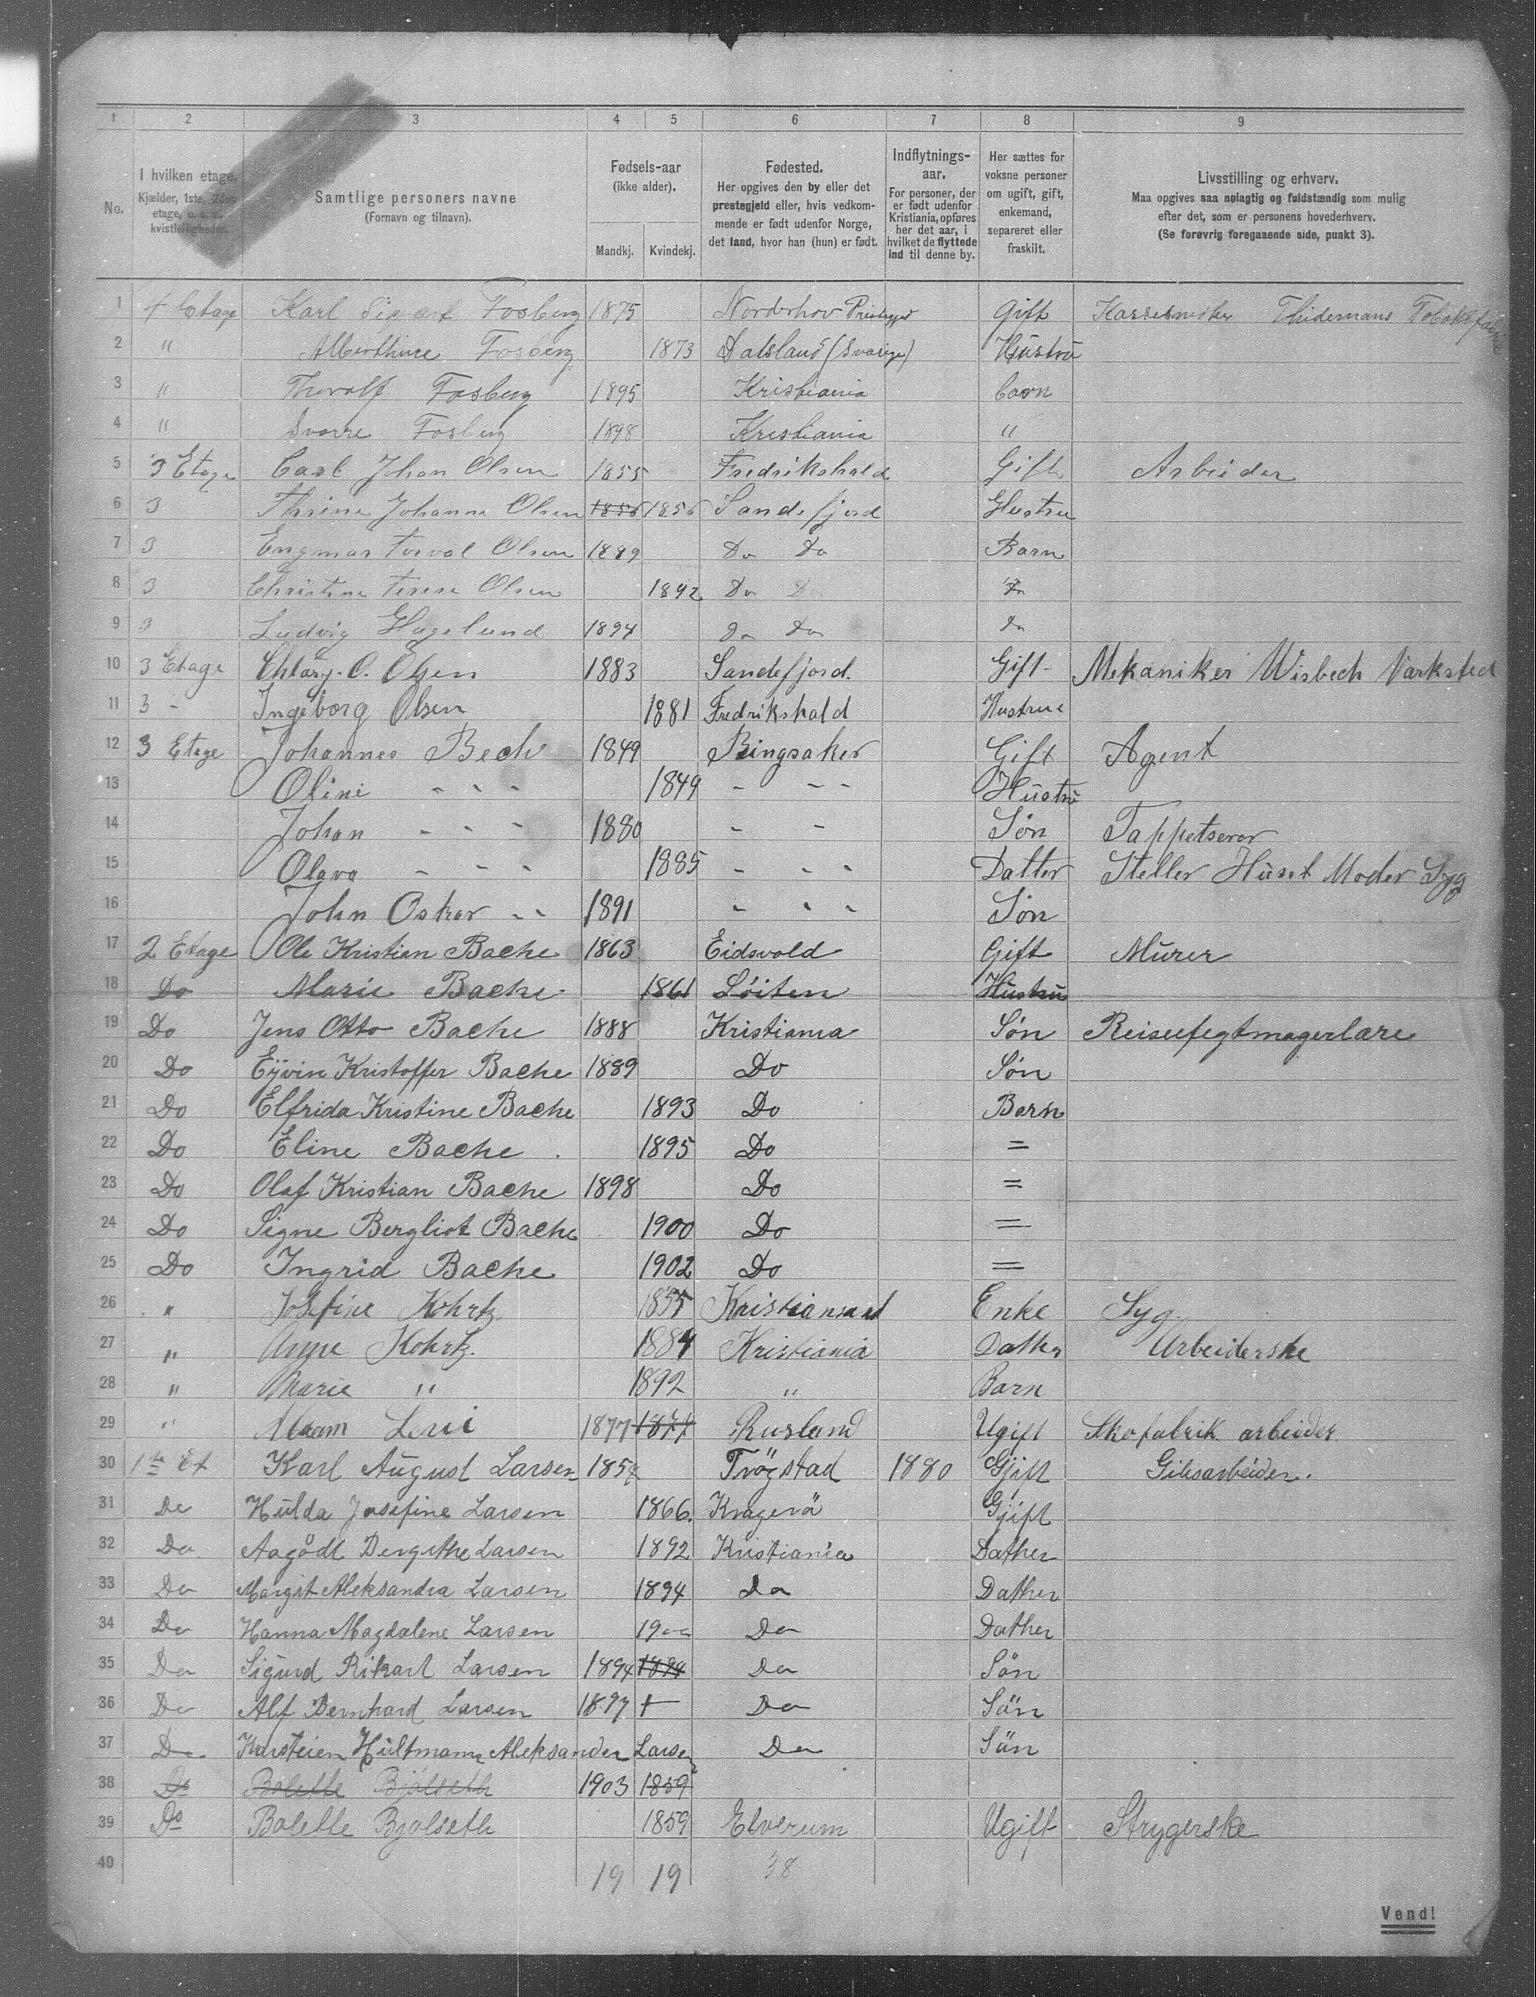 1 2 3 4 5 6 7 8 9
No.
I hvilken etage.
Kjælder, 1ste, 2den
etage, o. s. v.
kvistleiligheder.
Samtlige personers navne
(Fornavn og tilnavn).
Fødsels-aar
(ikke alder).
Mandkj. Kvindekj.
Fødested.
Her opgives den by eller det
prestegjeld eller, hvis vedkom-
mende er født udenfor Norge,
det land, hvor han (hun) er født.
Indflytnings-
aar.
For personer, der
er født udenfor
Kristiania, opføres
her det aar, i
hvilket de flyttede
ind til denne by.
Her sættes for
voksne personer
om ugift, gift,
enkemand,
separeret eller
fraskilt.
Livsstilling og erhverv.
Maa opgives saa nøiagtig og fuldstændig som mulig
efter det, som er personens hovederhverv.
(Se forøvrig foregaaende side, punkt 3).
1 4 Etage Karl Fosberg 1875 Norderhov Gift Thidemans
2 " Fosberg 1873 Dalsland (Sverige) Hustru
3 " Thorolf Fosberg 1895 Kristiania
4 " Sverre Fosberg 1898 Kristiania "
5 3 Etage Carl Jhan Olsen 1855 Fredrikshald Gift Arbeider
6 3 Thrine Johanne Olsen 1856 1856 Sandefjord Hustru
7 3 Engmar Torval Olsen 1889 Do Do Barn
8 3 Christine Terese Olsen 1892 Do Do Do
9 3 Ludvig Hagelund 1894 Do Do Do
10 3 Etage O. Olsen 1883 Sandefjord. Gift Mekaniker Wisbech Varksted
11 3 - Ingeborg Olsen 1881 Fredrikshald Hustrue
12 3 Etage Johannes Bech 1849 Ringsaker Gift Agent
13 Oline - - - 1849 - - - Hustru
14 Johan - - - 1880 - - Søn Tappetserer
15 Olava - - - 1885 - - - Datter Steller Huset Moder Syg
16 John Oskar - - 1891 - - - Søn
17 2 Etage Ole Kristian Bache 1863 Eidsvold Gift Murer
18 Do Marie Bache 1861 Löiten Hustru
19 Do Jens Otto Bache 1888 Kristiania Søn
20 Do Eivin Kristoffer Bache 1889 Do Søn
21 Do Elfrida Kristine Bache 1893 Do Barn
22 Do Eline Bache 1895 Do =
23 Do Olaf Kristian Bache 1898 Do =
24 Do Signe Bergliot Bache 1900 Do =
25 Do Ingrid Bache 1902 Do =
26 " Josefine Kohrtz 1855 Kristiansand Enke Syg.
27 " Kohrtz. 1884 Kristiania Datter Arbeiderske
28 " Marie " 1892 " Barn
29 " Levi 1877 Rusland Ugift Skofabrik arbeider.
30 1ste Et Karl August Larsen Trögstad 1880 Gjift
31 Do Hulda Josefine Larsen 1866. Kragerö Gjift
32 Do Aagödt Bergithe Larsen 1892 Kristiania Dather
33 Do Margit Aleksandra Larsen 1894 Do Dather
34 Do Hanna Magdalene Larsen 1900 Do Dather
35 Do Sigurd Rikart Larsen 1894 1894 Do Sön
36 Do Alf Bernhard Larsen 1897 Do Sön
37 Do Karsteien Hultmann Aleksander Larsen Do Sön
38 Do Bolette Bjølseth 1903 1859
39 Do Bolette Bjølseth 1859 Elverum Ugift Strygerske
40 19 19 38
Vend!